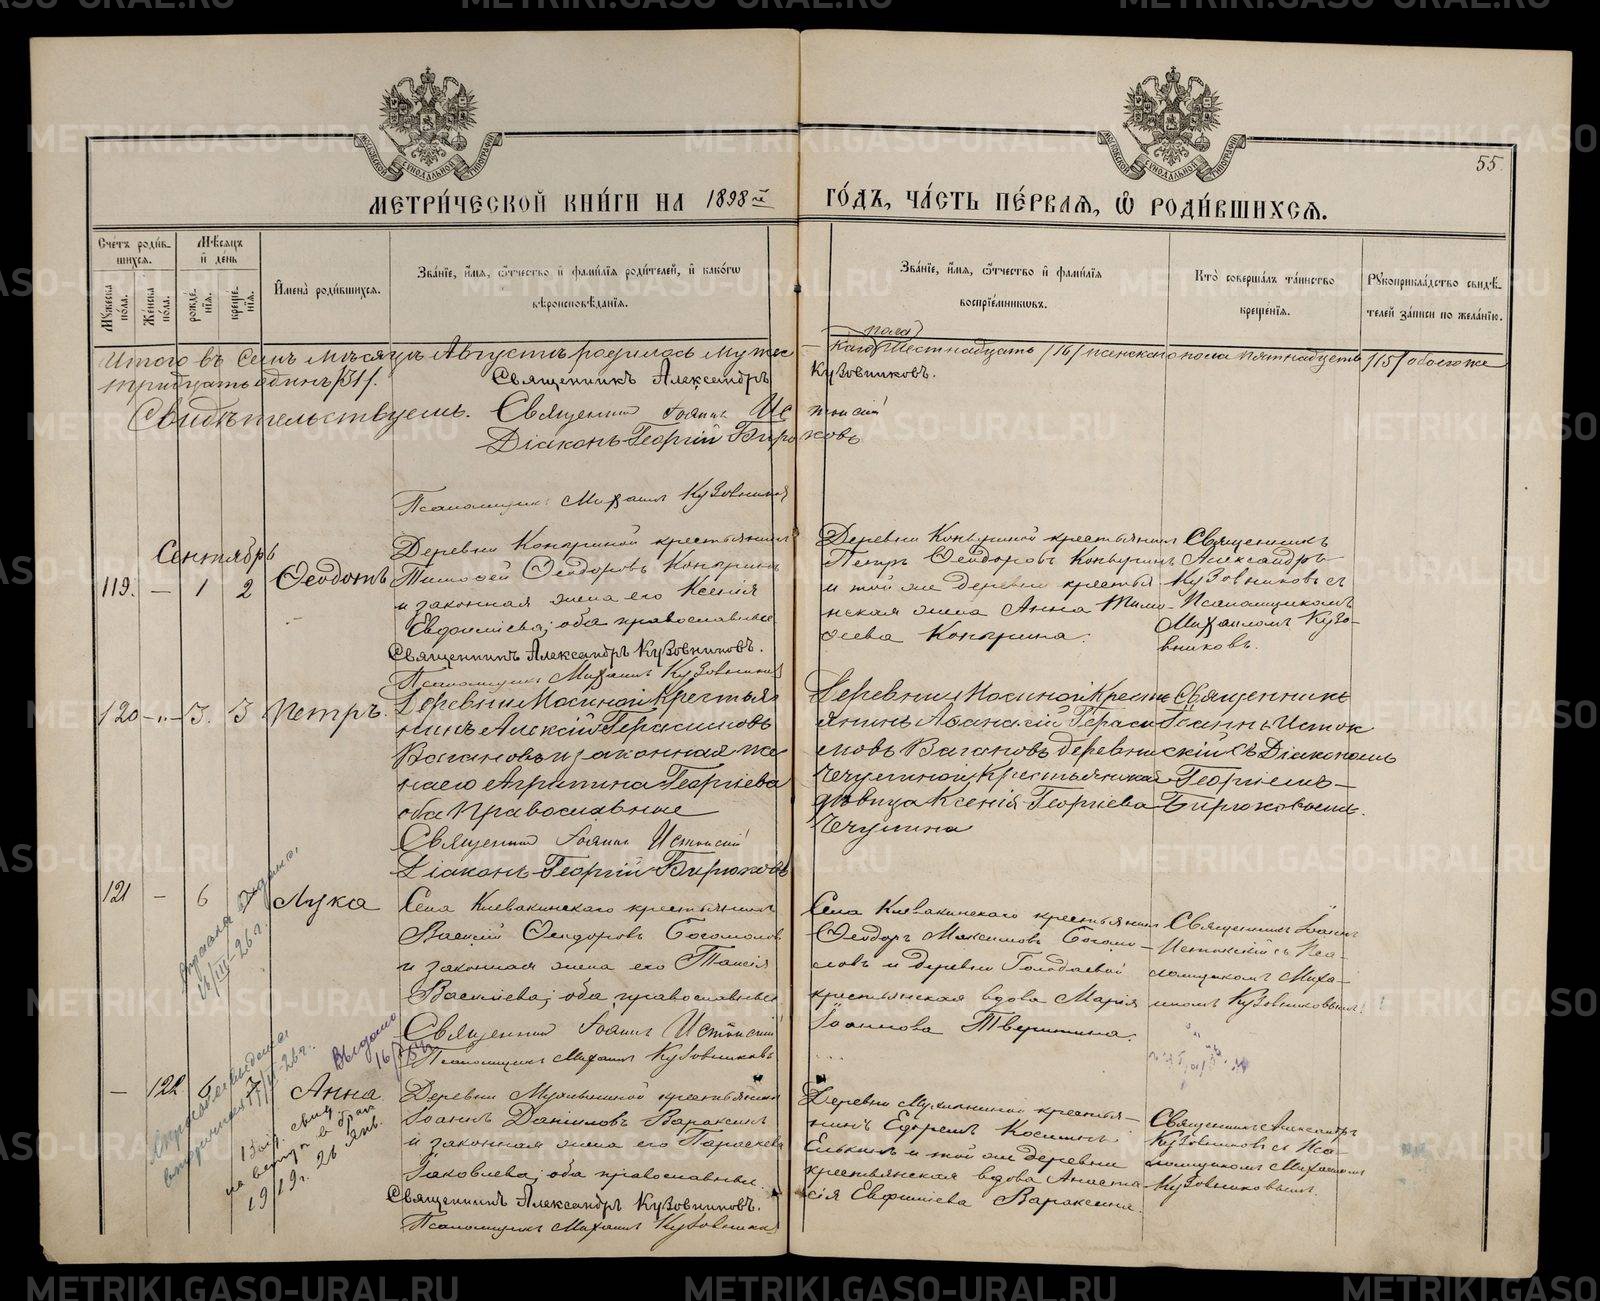 METRIKI.GASO-URAL.RU
55
МЕТРИ́ЧЕСКОЙ КНИ́ГИ НА 1898й ГО́ДЪ, ЧА́СТЬ ПЕ́РВАЯ, Ѡ РОДИ́ВШИХСЯ.
Счетъ роди́в-
шихся.
Му́жеска по́ла.
Же́нска по́ла.
Мѣ́сяцъ
и де́нь
рожде́нія.
креще́нія.
Имена̀ роди́вшихся.
Зва́ніе, и́мя, ѻ҆́тчество и фами́лія роди́телей, и како́гѡ
вѣроисповѣ́данія.
Зва́ніе, и́мя, ѻ҆́тчество и фами́лія
воспріе́мниковъ.
Кто̀ соверша́лъ та́инство
креще́нія.
Рꙋкоприкла́дство свидѣ́-
телей за́писи по жела́нію.
Итого въ семъ мѣсяцѣ Августѣ родилось мужес
каго пола шестнадцать /16/ женскаго пола пятнадцать /15/ обоего же
тридцать одинъ /31/.
Священникъ Александръ Кузовниковъ.
Свидѣтельствуемъ. Священникъ Іоаннъ Истокскій
Діаконъ Георгій Бирюковъ
Псаломщикъ Михаилъ Кузовниковъ
Сентябрь
119. — 1 2 Ѳеодотъ
Деревни Коныриной крестьянинъ
Тимоѳей Ѳеодоровъ Коныринъ
и законная жена его Ксенія
Евфиміева; оба православные
Священникъ Александръ Кузовниковъ.
Псаломщикъ Михаилъ Кузовниковъ
Деревни Коныриной крестьянинъ
Петръ Ѳеодоровъ Коныринъ
и той же деревни крестья-
нская жена Анна Тимо-
ѳеева Конырина.
Священникъ
Александръ
Кузовниковъ съ
Псаломщикомъ
Михаиломъ Кузо-
вниковъ.
120 —"— 3. 3 Петръ.
Деревни Мосиной Крестья
нинъ Алексій Герасимовъ
Вагановъ и законная же
на его Агрипина Георгіева
оба Православные
Священникъ Іоаннъ Истокскій
Діаконъ Георгій Бирюковъ
Деревни Мосиной Кресть
янинъ Аѳанасій Гераси
мовъ Вагановъ деревни
Чечулиной Крестьянская
дѣвица Ксенія Георгіева
Чечулина
Священникъ
Іоаннъ Исток
скій съ Діакономъ
Георгіемъ
Бирюковымъ.
121 — 6 Лука
Села Клевакинскаго крестьянинъ
Василій Ѳеодоровъ Богомоловъ
и законная жена его Таисія
Василіева; оба православные
Священникъ Іоаннъ Истокскій
Псаломщикъ Михаилъ Кузовниковъ
Села Клевакинскаго крестьянинъ
Ѳеодоръ Максимовъ Богомо-
ловъ и деревни Голодаевой
крестьянская вдова Марія
Іоаннова Тверитина.
Священникъ Іоаннъ
Истокскій съ Пса-
ломщикомъ Миха-
иломъ Кузовниковымъ.
Выдано
— 122 6 7 Анна
на вступ. в брак
1919 г. 26 янв.
Деревни Мухлыниной крестьянинъ
Іоаннъ Даниловъ Вараксинъ
и законная жена его Параскева
Іаковлева; оба православные.
Священникъ Александръ Кузовниковъ.
Псаломщикъ Михаилъ Кузовниковъ
Деревни Мухлыниной крестья-
нинъ Ефремъ Косминъ
Елькинъ и той же деревни
крестьянская вдова Анаста-
сія Евфиміева Вараксина.
Священникъ Александръ
Кузовниковъ съ Пса-
ломщикомъ Михаиломъ
Кузовниковымъ.